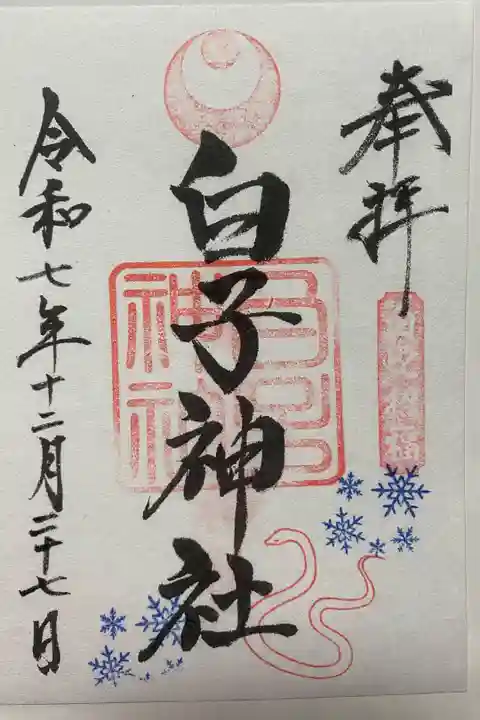 奉拝
白子神社
令和七年十二月二十七日